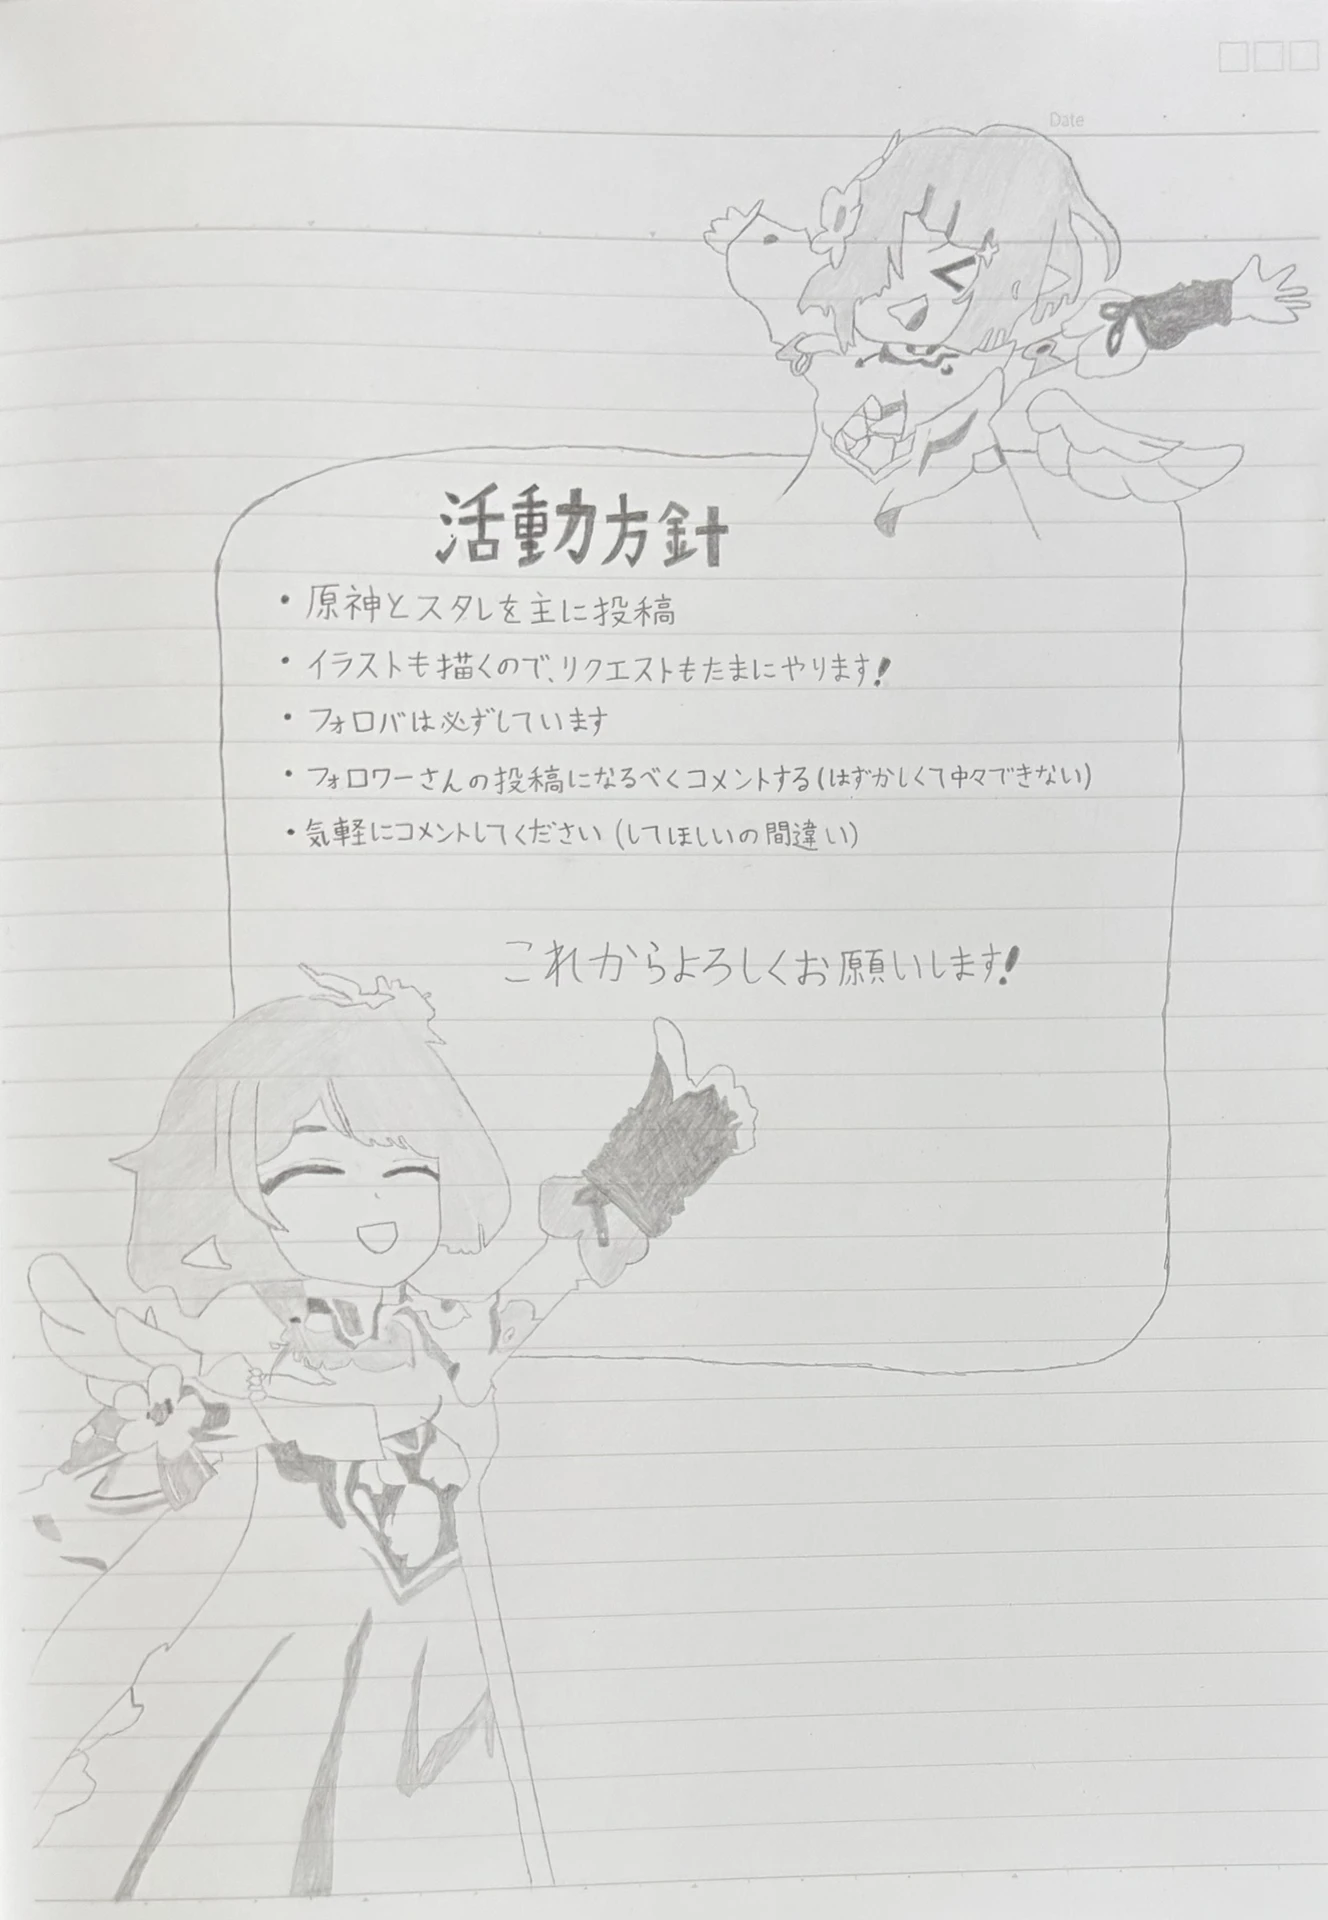 Date
活動方針
・原神とスタレを主に投稿
・イラストも描くので、リクエストもたまにやります!
・フォロバは必ずしています
・フォロワーさんの投稿になるべくコメントする(はずかしくて中々できない)
・気軽にコメントしてください(してほしいの間違い)
これからよろしくお願いします!